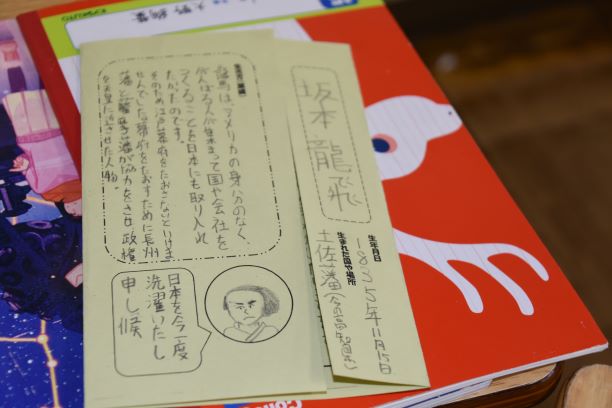 坂本龍飛
生年月日
1835年11月15日
生まれた国や場所
土佐藩(今の高知県)
生き方(業績)
龍馬は、アメリカの身分のなく、
がんばる人が集まって国や会社を
つくることを日本にも取り入れ
たかたのです。
そのため江戸幕府をたおさないといけま
せんでした。幕府をたおすために長州
藩と薩摩藩が協力をさせ政権
を天皇に返させた人物。
日本を今一度
洗濯いたし
申し候